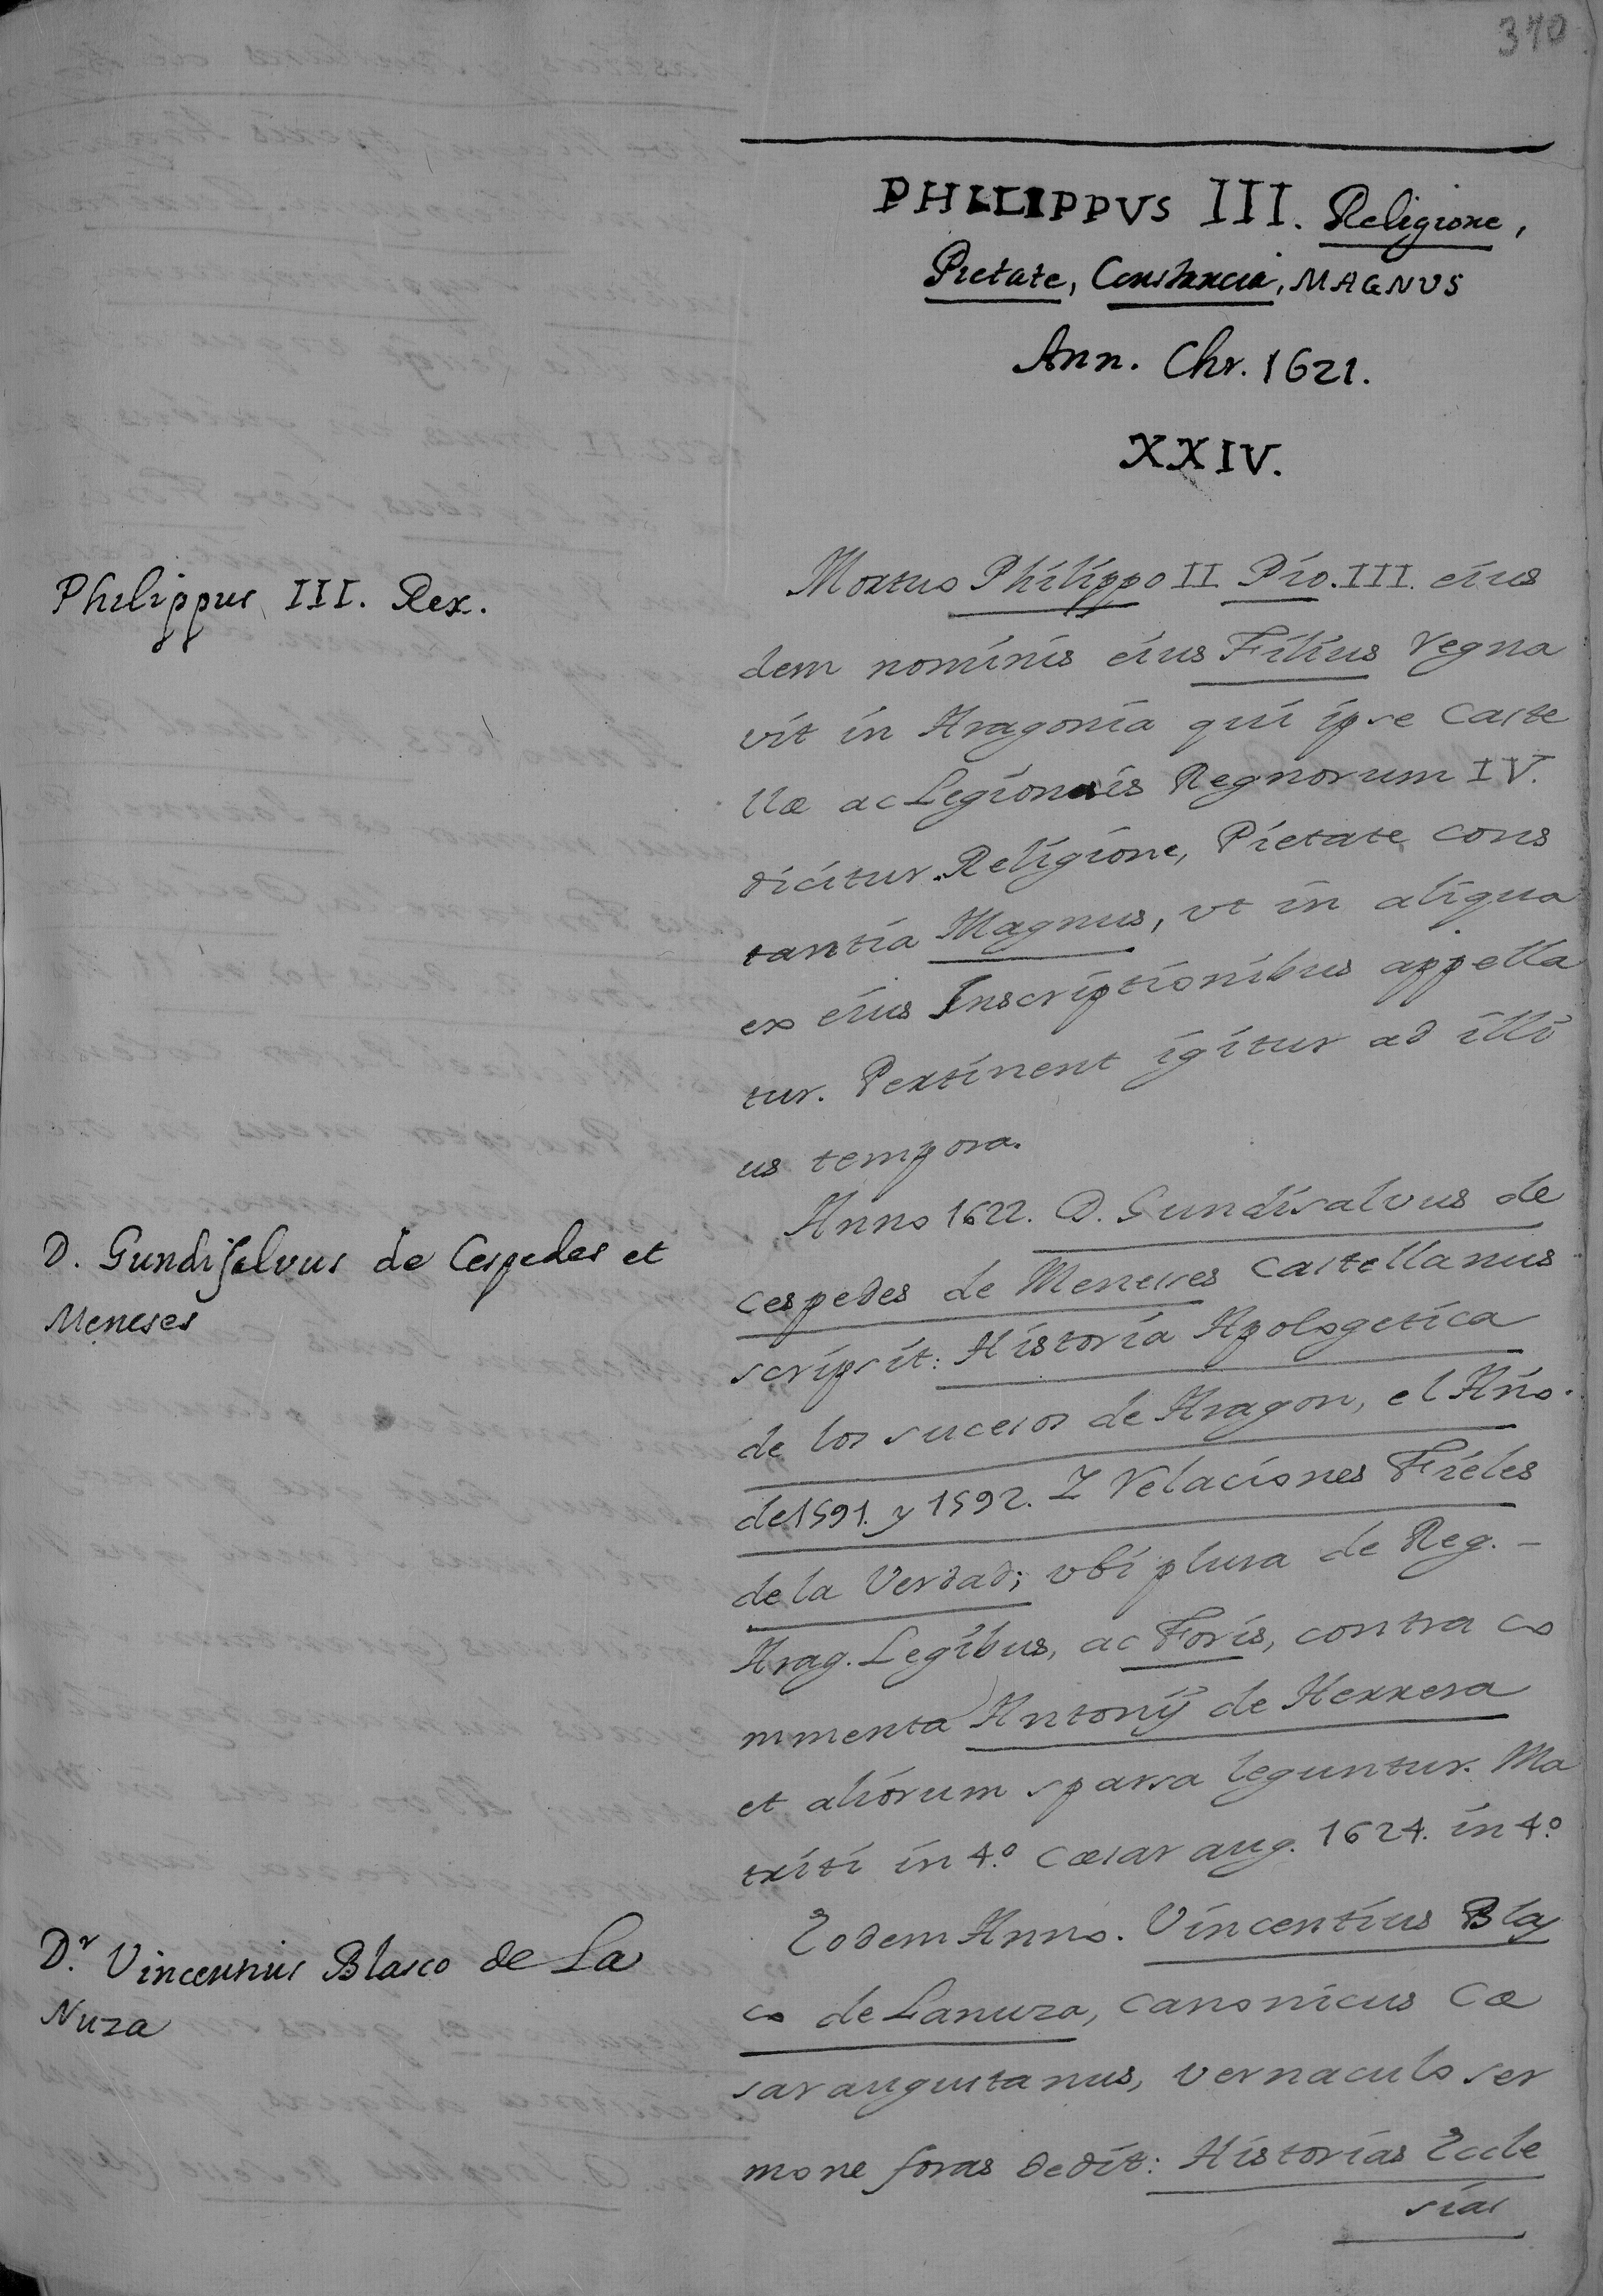 370
PHILIPPVS III. Religione,
Pietate, Constancia, MAGNUS
Ann. Chr. 1621.
XXIV.
Philippus III. Rex.
Mortuo Philippo II Pio. III. eius
dem nominis eius Filius regna
vit in Aragonia qui ipse Caste
llæ ac Legionis Regnorum IV.
dicitur. Religione, Pietate cons
tantia Magnus, vt in aliqua
ex eius Inscriptionibus appella
tur. Pertinent igitur ad illi
us tempora.
D. Gundisalvus de Cespedes et
Meneses
Anno 1622. D. Gundisalvus de
Cespedes de Meneses Castellanus
scripsit: Historia Apologetica
de los sucesos de Aragon, el Año.
de 1591. y 1592. Y Relaciones Fieles
de la Verdad; vbi plura de Reg. -
Arag. Legibus, ac Foris, contra co
mmenta Antonÿ de Herrera
et aliorum sparsa leguntur. Ma
triti in 4.º Cæsar aug. 1624. in 4.º
Dr. Vincennius Blasco de La
Nuza
Eodem Anno. Vincentius Blas
co de Lanuza, Canonicus Cæ
saraugustanus, vernaculo ser
mone foras dedit: Historias Eccle
sias